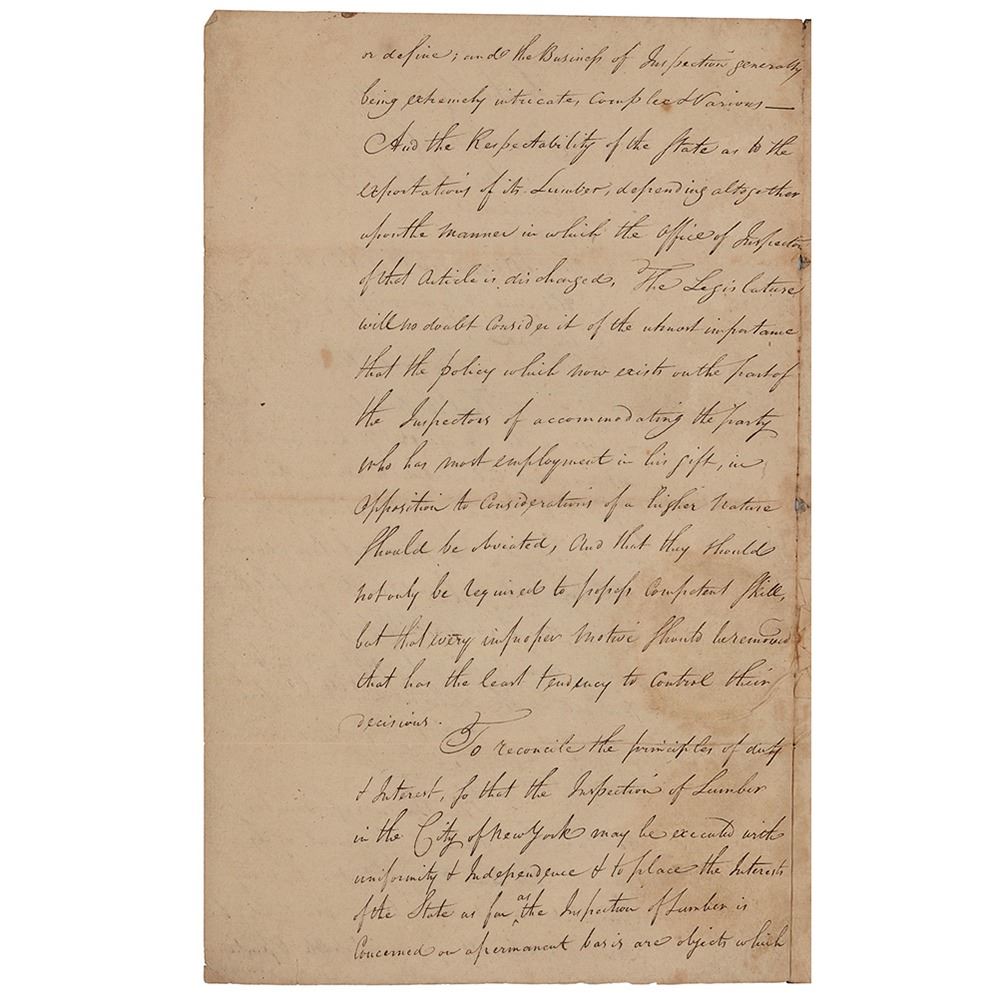 or define; and the Business of Inspection generally
being extremely intricate, complex & Various —
And the Respectability of the State as to the
exportations of its Lumber, depending altogether
upon the manner in which the Office of Inspector
of that Article is discharged, The Legislature
will no doubt Consider it of the utmost importance
that the policy which now exists on the part of
the Inspectors of accommodating the party
who has most employment in his gift, in
opposition to Considerations of a higher Nature
should be obviated, and that they should
not only be required to possess Competent Skill,
but that every improper motive should be removed
that has the least tendency to control their
decisions.
To reconcile the principles of duty
& Interest, so that the Inspection of Lumber
in the City of New York may be executed with
uniformity & Independence & to place the Interests
of the State as far as the Inspection of Lumber is
Concerned on a permanent basis are objects which